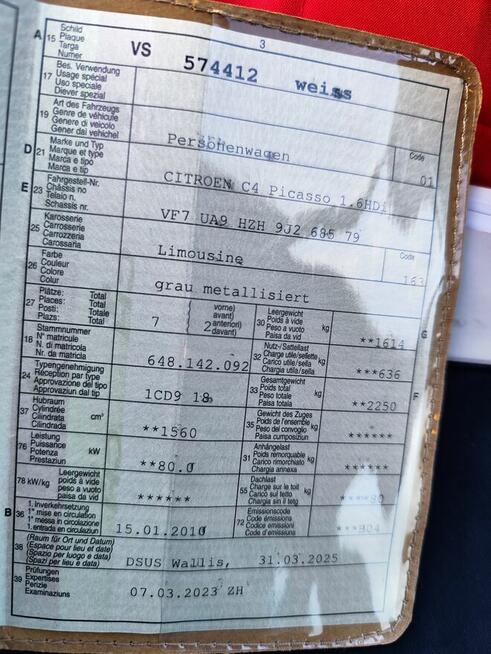 3
A 15 Schild Plaque Targa Numer VS 574412 weiss
17 Bes. Verwendung Usage spécial Uso speciale Diever spezial
19 Art des Fahrzeugs Genre de véhicule Genere di veicolo Gener dal vehichel Personenwagen Code 01
D 21 Marke und Typ Marque et type Marca e tipo Marca e tip CITROEN C4 Picasso 1.6HDi
E 23 Fahrgestell-Nr. Châssis no Telaio n. Schassis nr. VF7 UA9 HZH 9J2 685 79
25 Karosserie Carrosserie Carrozzeria Carossaria Limousine Code
26 Farbe Couleur Colore Colur grau metallisiert
27 Plätze: Total Places: Total Posti: Totale Plazs: Total 7 2 vorne) avant) anteriori) davant) 30 Leergewicht Poids à vide Peso a vuoto Paisa da vid kg **1614 G
18 Stammnummer N° matricule N. di matricola Nr. da matricla 648.142.092 32 Nutz-/Sattellast Charge utile/sellette Carico utile/sella Chargia utila/sella kg ***636
24 Typengenehmigung Réception par type Approvazione del tipo Approvaziun dal tip 1CD9 18 33 Gesamtgewicht Poids total Peso totale Paisa totala kg **2250 F
37 Hubraum Cylindrée Cilindrata Cilindrada cm³ **1560 35 Gewicht des Zuges Poids de l'ensemble Peso del convoglio Paisa cumposiziun kg ******
76 Leistung Puissance Potenza Prestaziun kW **80.0 31 Anhängelast Poids remorquable Carico rimorchiato Chargia annexa kg ******
78 kW/kg Leergewicht poids à vide peso a vuoto paisa da vid ****** 55 Dachlast Charge sur le toit Carico sul tetto Chargia sin il tetg kg ****80
B 36 1. Inverkehrsetzung 1re mise en circulation 1a messa in circolazione 1. entrada en circulaziun 15.01.2010 72 Emissionscode Code émissions Codice emissioni Code d'emissiuns
38 (Raum für Ort und Datum) (Espace pour lieu et date) (Spazio per luogo e data) (Spazi per lieu e data) DSUS Wallis, 31.03.2025
39 Prüfungen Expertises Perizie Examinaziuns 07.03.2023 ZH